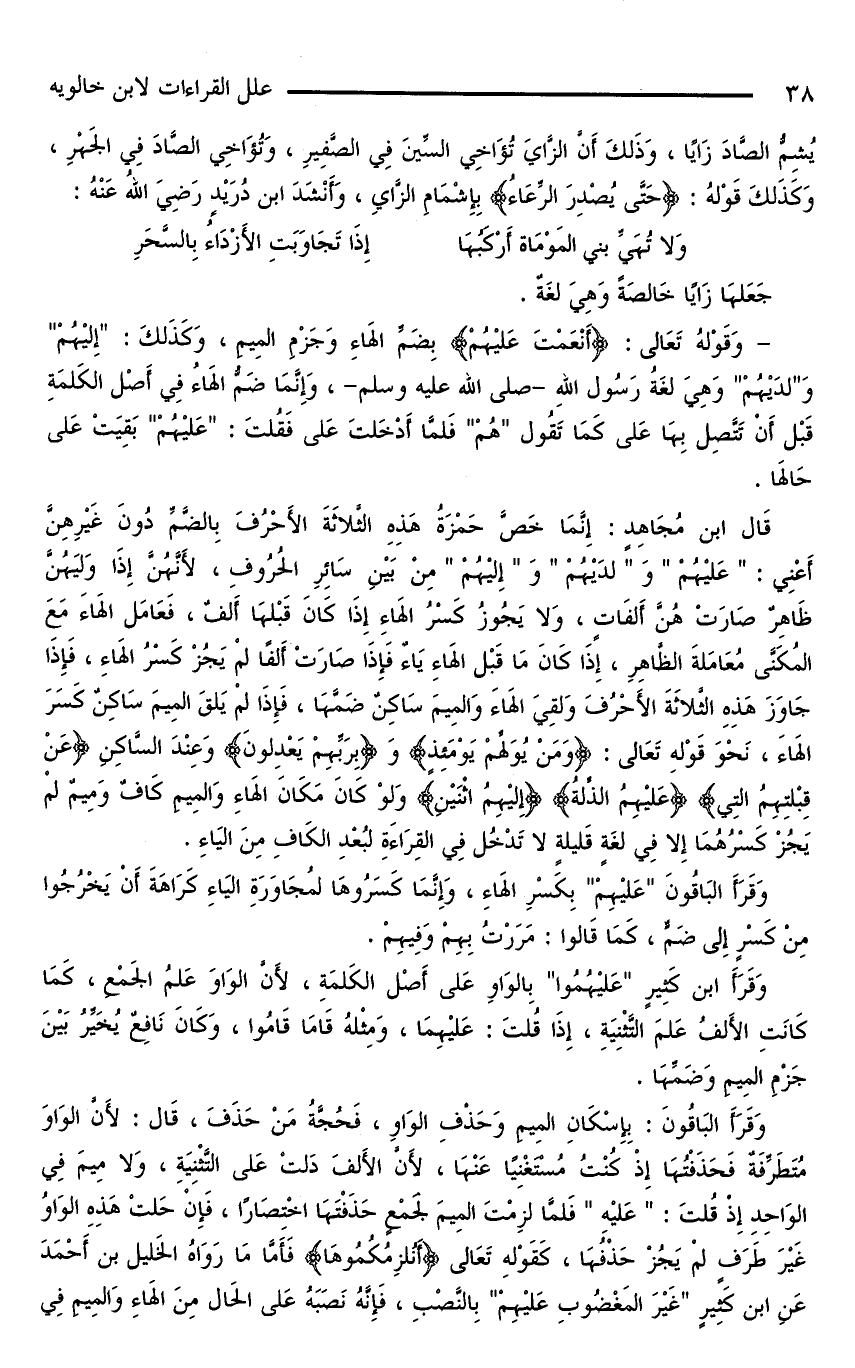 ٣٨ علل القراءات لابن خالويه
يُشِمُّ الصَّادَ زَايًا ، وَذَلِكَ أَنَّ الزَّايَ تُؤَاخِي السِّينَ فِي الصَّفِيرِ ، وَتُؤَاخِي الصَّادَ فِي الجَهْرِ ،
وَكَذَلِكَ قَوْلهُ : ﴿حَتَّى يُصْدِرَ الرِّعَاءُ﴾ بِإِشْمَامِ الزَّايِ ، وَأَنْشَدَ ابن دُرَيْدٍ رَضِيَ اللهُ عَنْهُ :
وَلا تُهَيِّ بني المَوْمَاة أَرْكَبُهَا إِذَا تَجَاوَبَتِ الأَزْدَاءُ بِالسَّحَرِ
جَعَلهَا زَايًا خَالصَةً وَهِيَ لغَةٌ .
– وَقَوْلهُ تَعَالى : ﴿أَنْعَمْتَ عَليْهُمْ﴾ بِضَمِّ الهَاءِ وَجَزْمِ الميمِ ، وَكَذَلكَ : "إِليْهُمْ"
وَ"لدَيْهُمْ" وَهِيَ لغَةُ رَسُول الله –صلى الله عليه وسلم– ، وَإِنَّمَا ضَمُّ الهَاءُ فِي أَصْل الكَلمَةِ
قَبْل أَنْ تَتَّصِل بِهَا عَلى كَمَا تَقُول "هُمْ" فَلمَّا أَدْخَلتَ عَلى فَقُلتَ : "عَليْهُمْ" بَقِيَتْ عَلى
حَالهَا .
قَال ابن مُجَاهِدٍ : إِنَّمَا خَصَّ حَمْزَةُ هَذِهِ الثَّلاثَةَ الأَحْرُفَ بِالضَّمِّ دُونَ غَيْرِهِنَّ
أَعْنِي : " عَليْهُمْ " وَ " لدَيْهُمْ " وَ " إِليْهُمْ " مِنْ بَيْنِ سَائِرِ الحُرُوفِ ، لأَنَّهُنَّ إِذَا وَليَهُنَّ
ظَاهِرٌ صَارَتْ هُنَّ أَلفَاتٍ ، وَلا يَجُوزُ كَسْرُ الهَاءِ إِذَا كَانَ قَبْلهَا أَلفٌ ، فَعَامَل الهَاءَ مَعَ
المُكَنَّى مُعَامَلةَ الظَّاهِرِ ، إِذَا كَانَ مَا قَبْل الهَاءِ يَاءً فَإِذَا صَارَتْ أَلفًا لمْ يَجُزْ كَسْرُ الهَاءِ ، فَإِذَا
جَاوَزَ هَذِهِ الثَّلاثَةَ الأَحْرُفَ وَلقِيَ الهَاءَ وَالميمَ سَاكِنٌ ضَمَّهَا ، فَإِذَا لمْ يَلقَ الميمَ سَاكِنٌ كَسَرَ
الهَاءَ ، نَحْوَ قَوْلهِ تَعَالى : ﴿وَمَنْ يُوَلهِمْ يَوْمَئِذٍ﴾ وَ ﴿بِرَبِّهِمْ يَعْدِلونَ﴾ وَعِنْدَ السَّاكِنِ ﴿عَنْ
قِبْلتِهِمُ التِي﴾ ﴿عَليْهِمُ الذِّلةُ﴾ ﴿إِليْهِمُ اثْنَيْنِ﴾ وَلوْ كَانَ مَكَانَ الهَاءِ وَالميمِ كَافٌ وَمِيمٌ لمْ
يَجُزْ كَسْرُهُمَا إِلا فِي لغَةٍ قَليلةٍ لا تَدْخُل فِي القِرَاءَةِ لبُعْدِ الكَافِ مِنَ اليَاءِ .
وَقَرَأَ البَاقُونَ "عَليْهِمْ" بِكَسْرِ الهَاءِ ، وَإِنَّمَا كَسَرُوهَا لمُجَاوَرَةِ اليَاءِ كَرَاهَةَ أَنْ يَخْرُجُوا
مِنْ كَسْرٍ إِلى ضَمٍّ ، كَمَا قَالوا : مَرَرْتُ بِهِمْ وَفِيهِمْ .
وَقَرَأَ ابن كَثِيرٍ "عَليْهُمُوا" بِالوَاوِ عَلى أَصْل الكَلمَةِ ، لأَنَّ الوَاوَ عَلمُ الجَمْعِ ، كَمَا
كَانَتِ الأَلفُ عَلمَ التَّثْنِيَةِ ، إِذَا قُلتَ : عَليْهِمَا ، وَمِثْلهُ قَامَا قَامُوا ، وَكَانَ نَافِعٌ يُخَيِّرُ بَيْنَ
جَزْمِ الميمِ وَضَمِّهَا .
وَقَرَأَ البَاقُونَ : بِإِسْكَانِ الميمِ وَحَذْفِ الوَاوِ ، فَحُجَّةُ مَنْ حَذَفَ ، قَال : لأَنَّ الوَاوَ
مُتَطَرِّفَةٌ فَحَذَفْتُهَا إِذْ كُنْتُ مُسْتَغْنِيًا عَنْهَا ، لأَنَّ الأَلفَ دَلتْ عَلى التَّثْنِيَةِ ، وَلا مِيمَ فِي
الوَاحِدِ إِذْ قُلتَ : " عَليْهِ " فَلمَّا لزِمْتَ الميمَ لجَمْعٍ حَذَفْتَهَا اخْتِصَارًا ، فَإِنْ حَلتْ هَذِهِ الوَاوُ
غَيْرَ طَرَفٍ لمْ يَجُزْ حَذْفُهَا ، كَقَوْلهِ تَعَالى ﴿أَنُلزِمُكُمُوهَا﴾ فَأَمَّا مَا رَوَاهُ الخَليل بن أَحْمَدَ
عَنِ ابن كَثِيرٍ "غَيْرَ المَغْضُوبِ عَليْهِمْ" بِالنَّصْبِ ، فَإِنَّهُ نَصَبَهُ عَلى الحَال مِنَ الهَاءِ وَالميمِ فِي